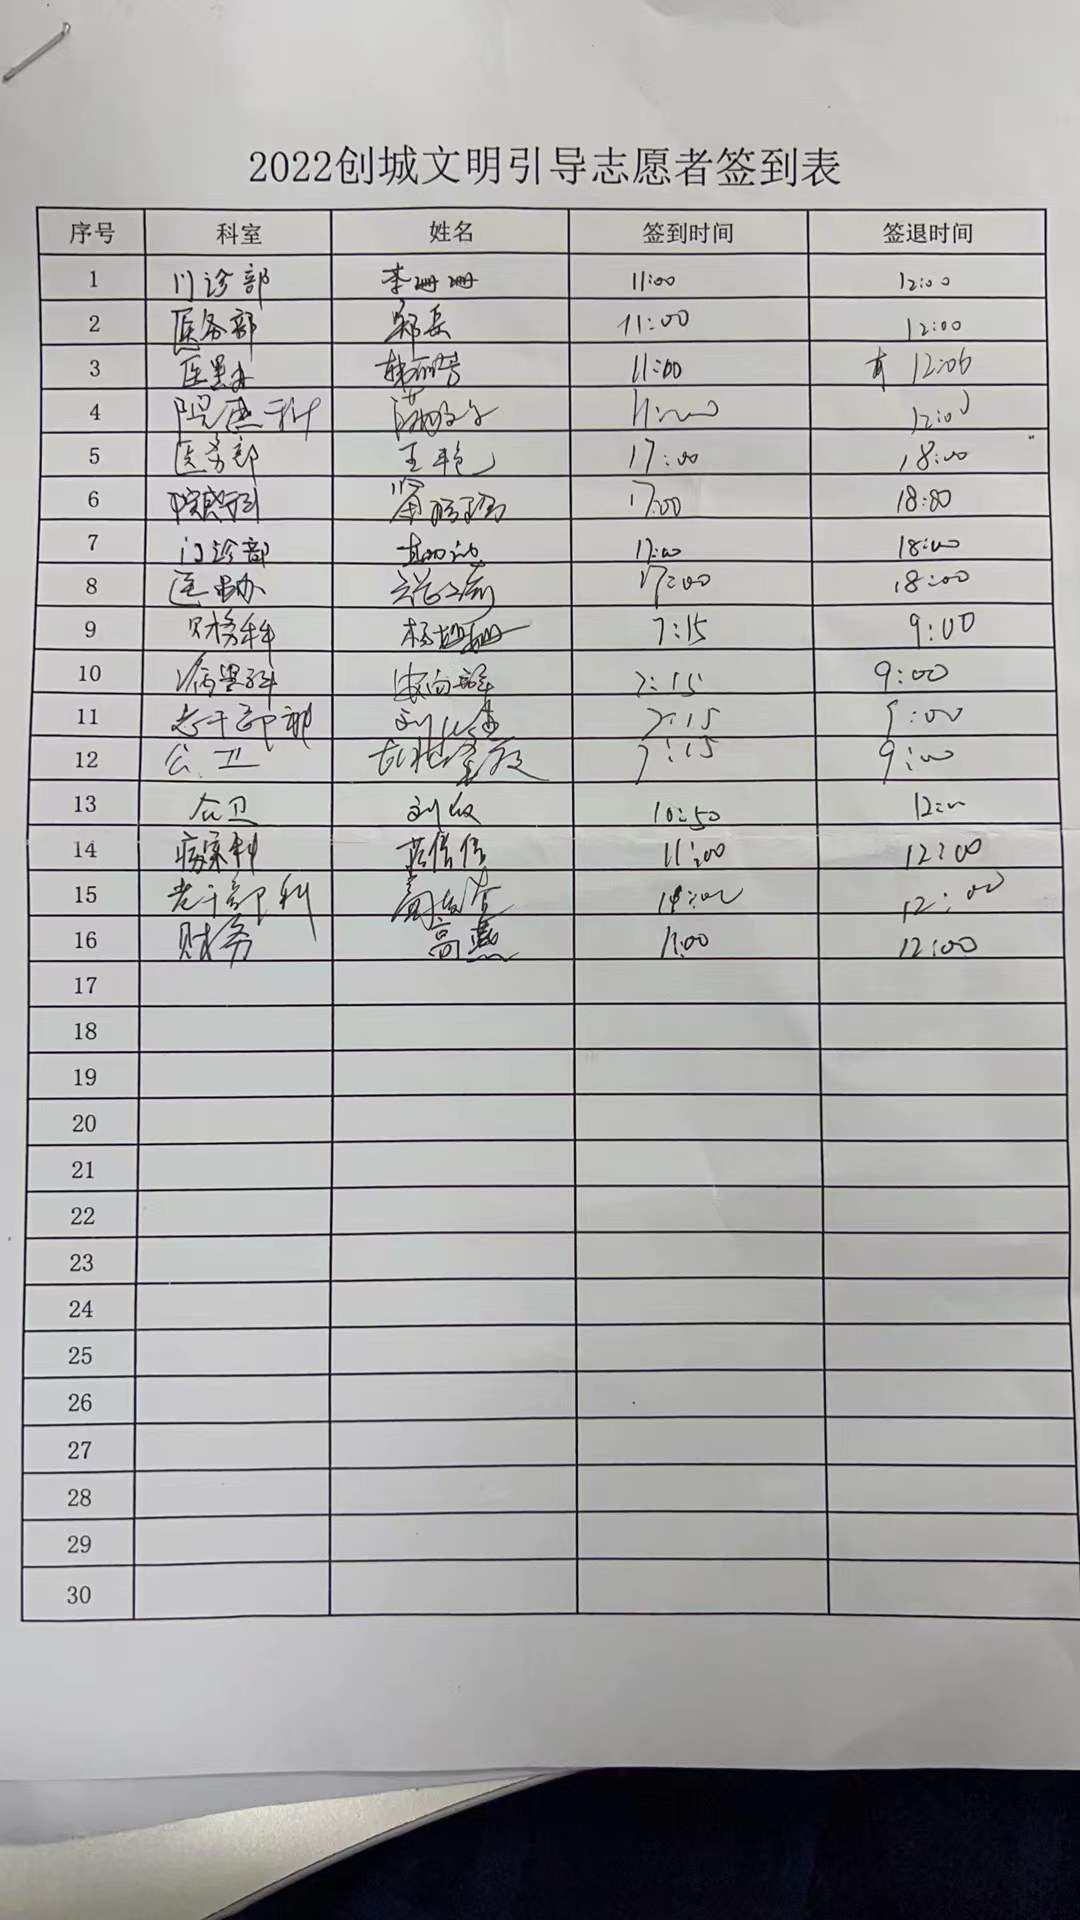 2022创城文明引导志愿者签到表
序号 科室 姓名 签到时间 签退时间
1 门诊部 李珊珊 11:00 12:00
2 医务部 郑岳 11:00 12:00
3 医患办 韩丽芳 11:00 12:00
4 院感科 11:00 12:00
5 医务部 王艳 17:00 18:00
6 院感科 17:00 18:00
7 门诊部 17:00 18:00
8 医患办 17:00 18:00
9 财务科 杨珊 7:15 9:00
10 病案科 7:15 9:00
11 老干部科 刘 7:15 9:00
12 公卫 7:15 9:00
13 公卫 刘 10:50 12:00
14 病案科 倩倩 11:00 12:00
15 老干部科 12:00
16 财务 高燕 11:00 12:00
17
18
19
20
21
22
23
24
25
26
27
28
29
30